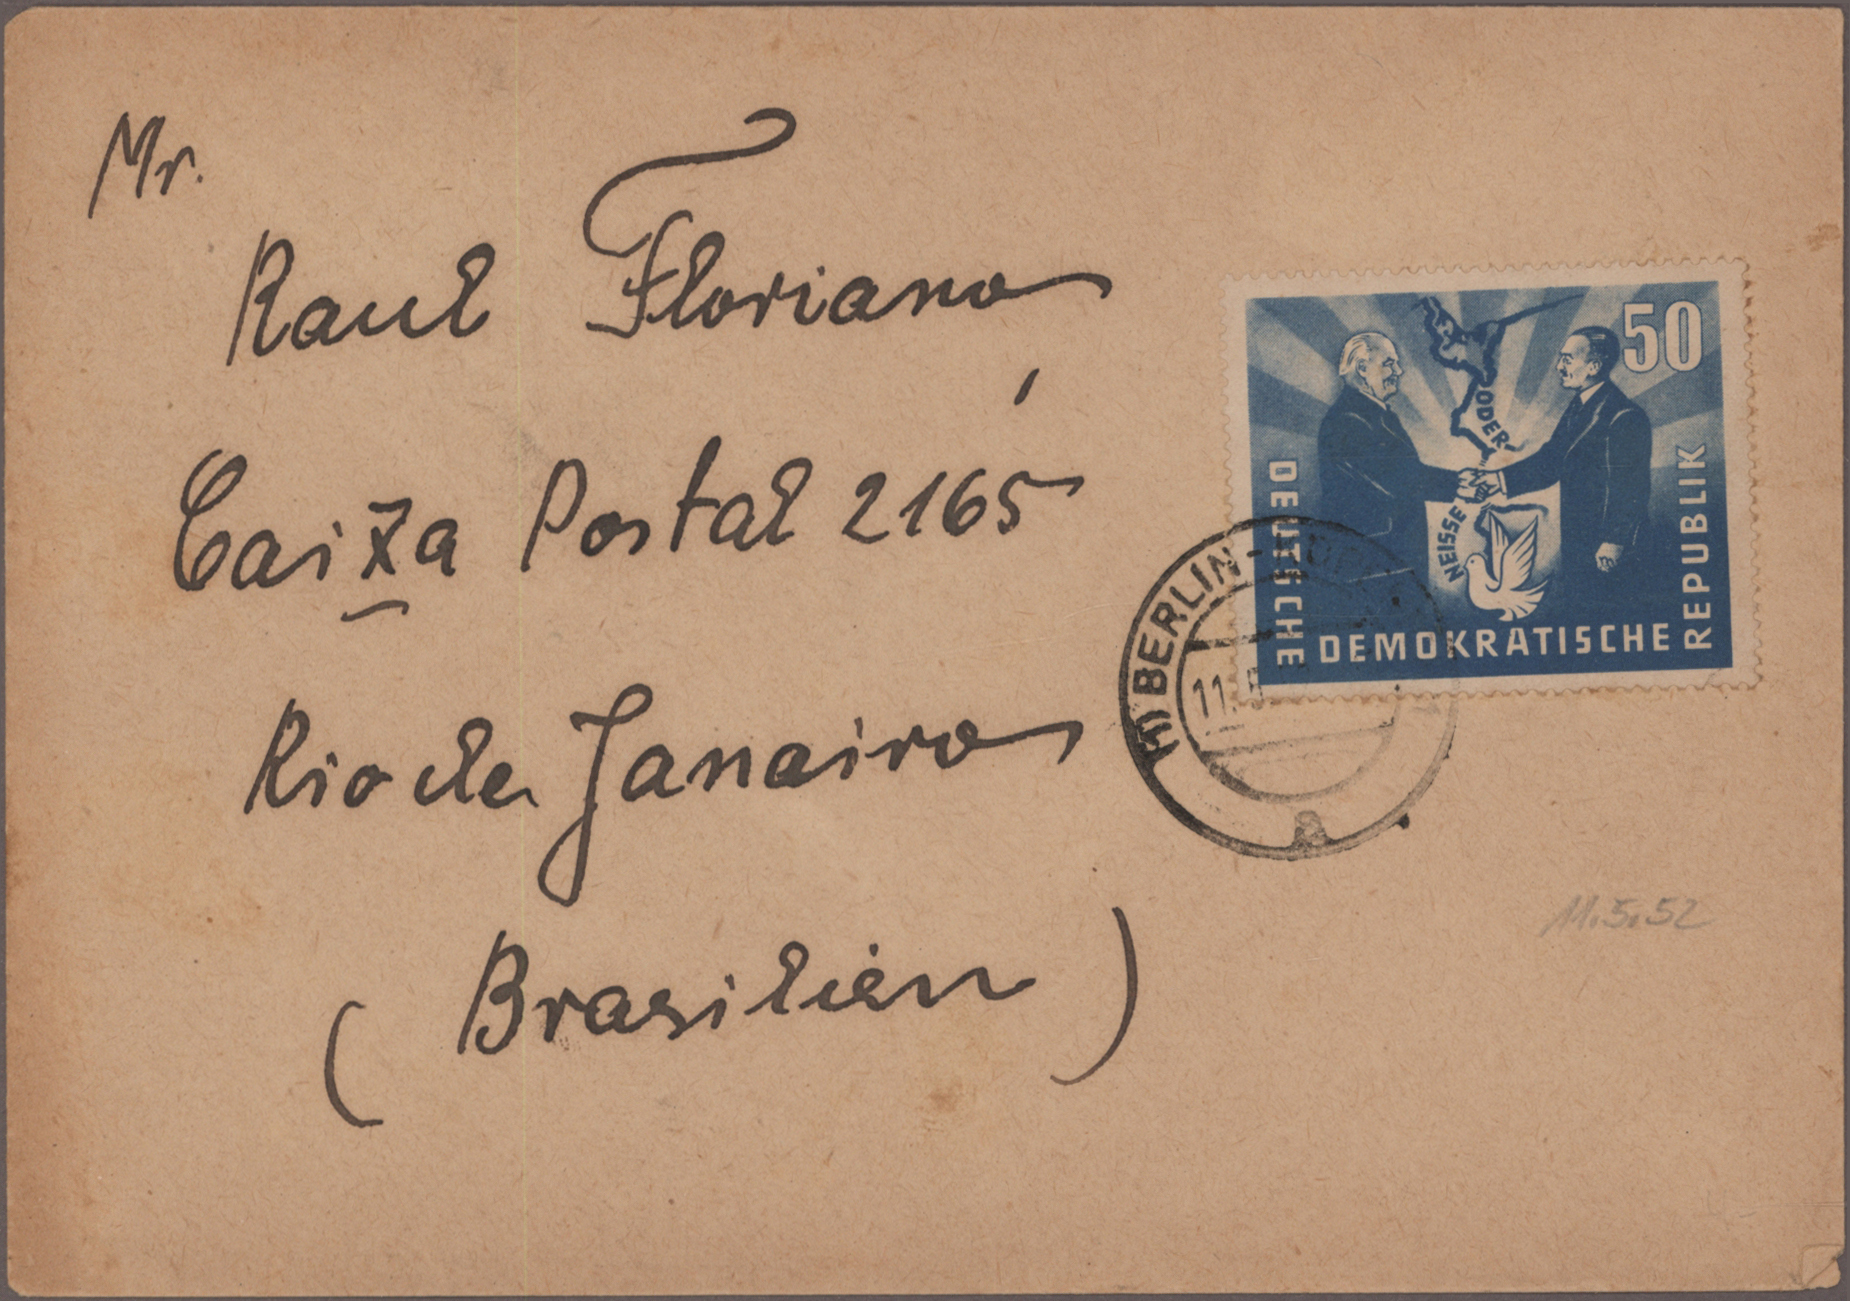 Mr.
Raul Floriano
Caixa Postal 2165
Rio de Janairo
(Brasilien)
50
ODER
NEISSE
DEUTSCHE
DEMOKRATISCHE
REPUBLIK
BERLIN-
11.5
a
11.5.52